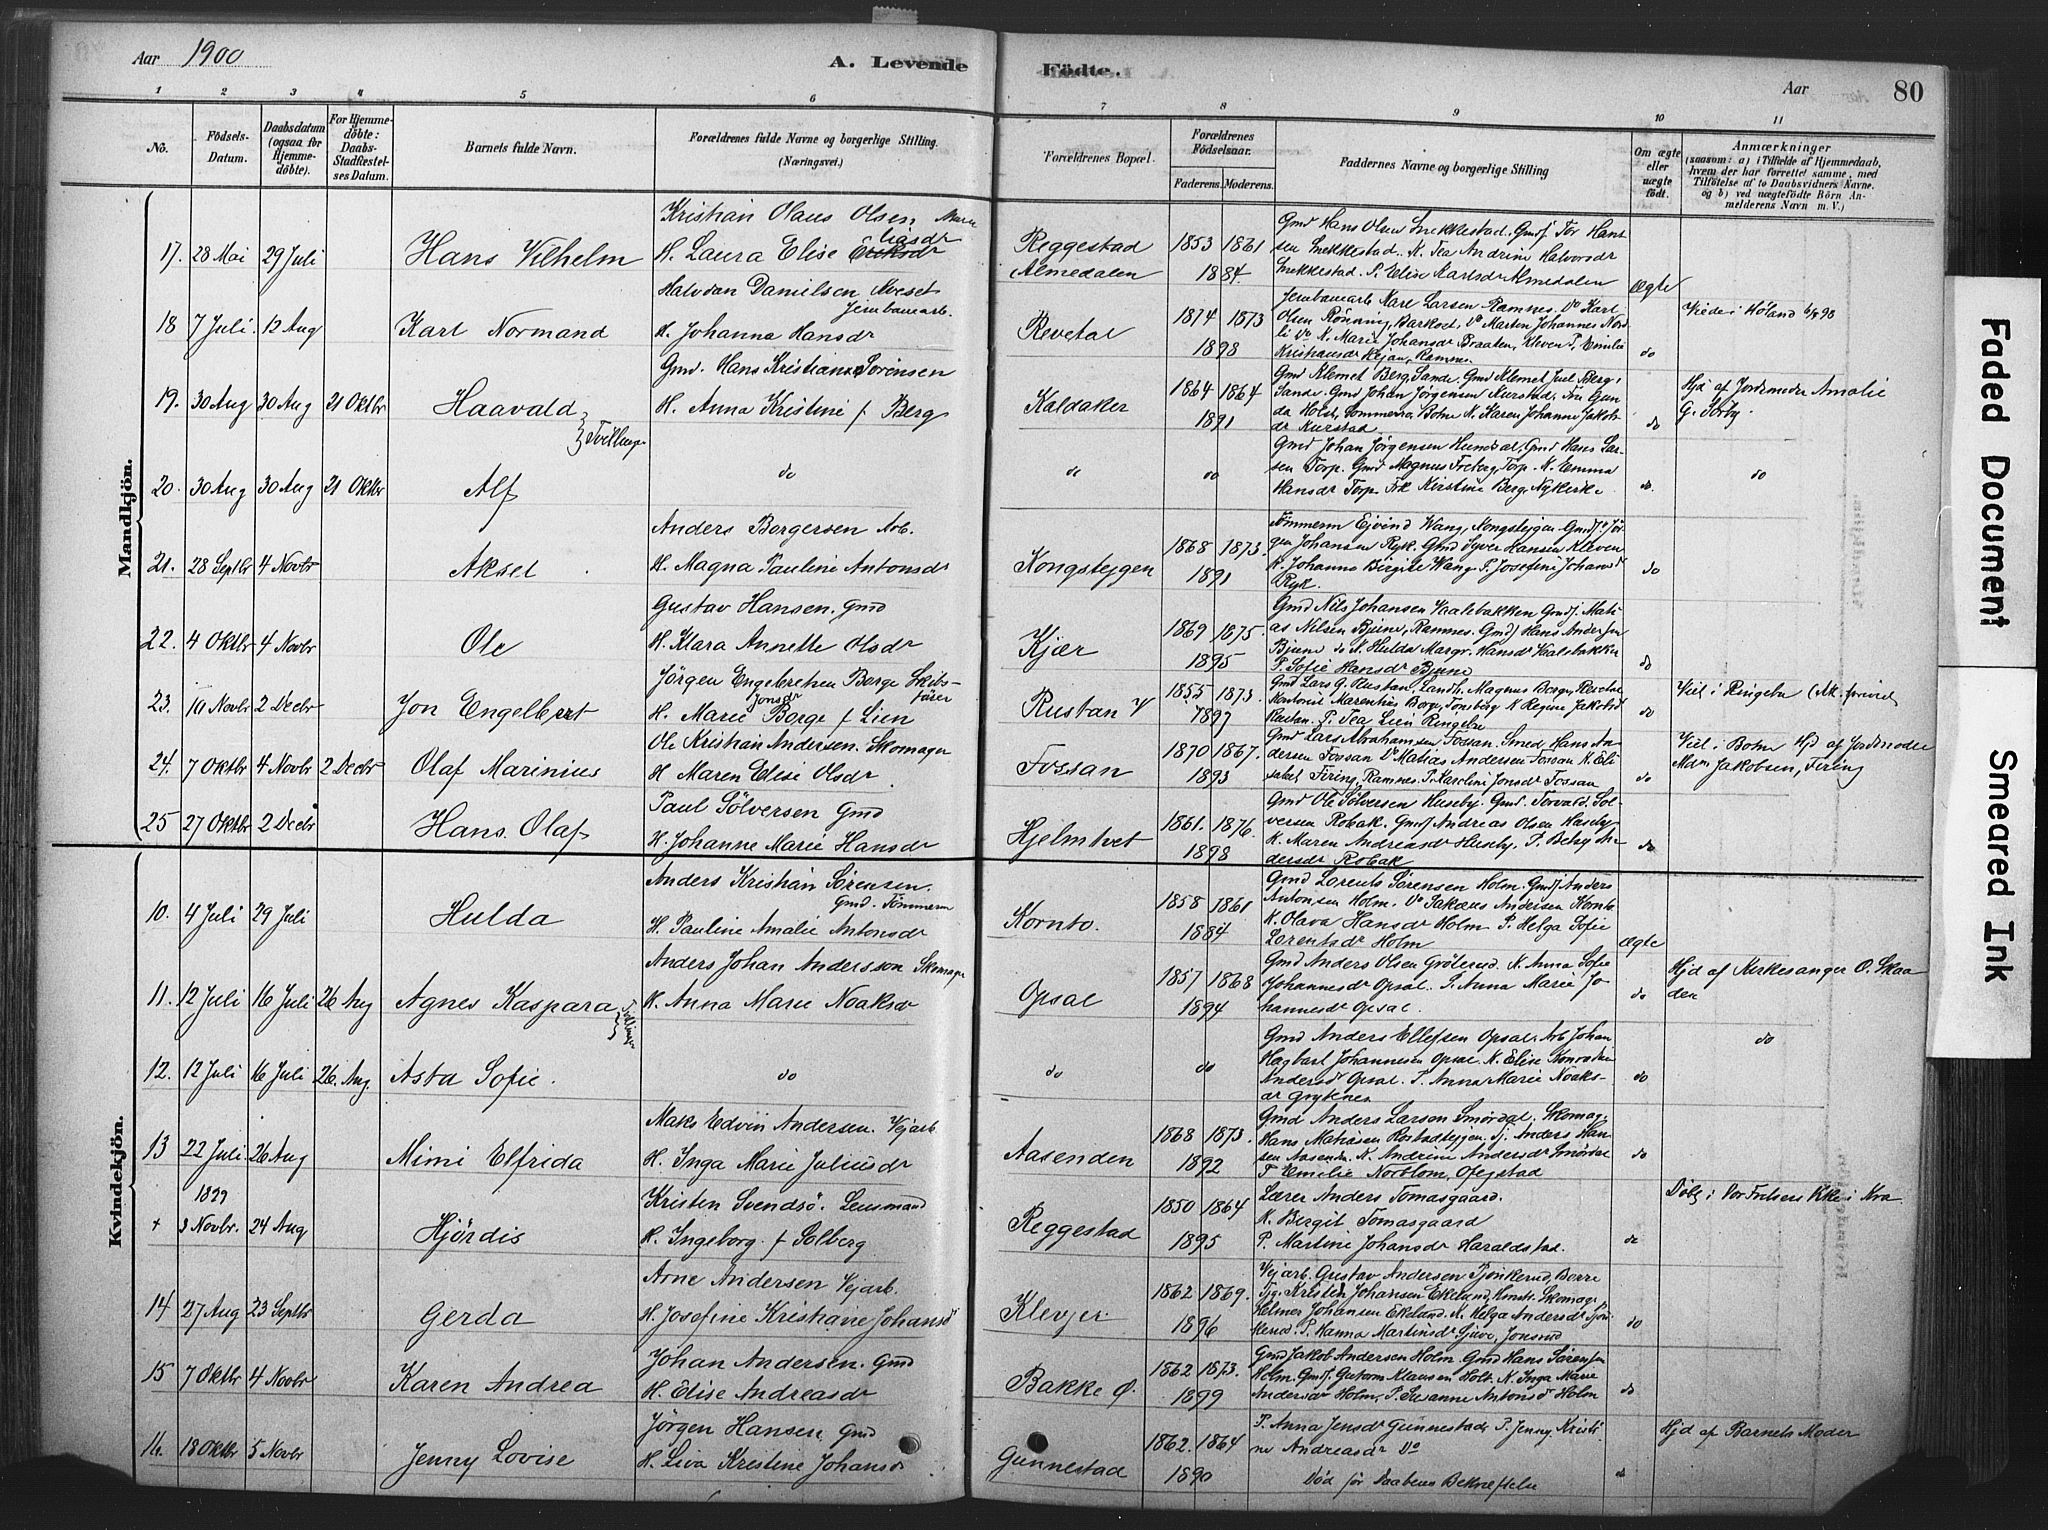 Aar 1900
A. Levende
Födte.
Aar
80
1 2 3 4 5 6 7 8 9 10 11
No.
Födsels-
Datum.
Daabsdatum
(ogsaa for
Hjemme-
døbte).
For Hjemme-
døbte:
Daabs-
Stadfæstel-
ses Datum.
Barnets fulde Navn.
Forældrenes fulde Navne og borgerlige Stilling.
(Næringsvei.)
Forældrenes Bopæl.
Forældrenes
Födselsaar.
Faderens. Moderens.
Faddernes Navne og borgerlige Stilling
Om ægte
eller
uægte
født.
Anmærkninger
(saasom: a) i Tilfælde af Hjemmedaab,
hvem der har forrettet samme, med
Tilföielse af to Daabsvidners Navne,
og b) ved uægtefödte Börn An-
melderens Navn m. V.)
Mandkjön.
17. 28 Mai 29 Juli
Hans Vilhelm
Kristian Olaus Olsen
H. Laura Elise
Reggestad
Almedalen
1853 1861
1884.
Gmd Hans Olsen Snekkestad. Gmdf Tor Han-
sen Snekkestad. K. Tea Andrine Halvorsdr
Snekkestad. P. Elise Karlsdr Almedalen
ægte
18 7 Juli. 12 Aug
Karl Normand
Halvdan Danielsen Kveset
Jernbanearb.
H. Johanna Hansdr
Revetal
1874 1873
1898
Jernbanearb Karl Larsen Ramnes. Do Karl
Olsen Rönning, Barkost, Do Martin Johannes
K. Marie Johansdr Braaten, Kleven P. Emilie
Kristiansdr Rejan, Ramnes
do
Viede i Höland
19. 30 Aug 30 Aug 21 Oktbr
Haavald
Tvillinger
Gmd. Hans Kristian Sörensen
H. Anna Kristine f Berg
Kaldaker
1864 1864
1891
Gmd Klemet Berg, Sande. Gmd Klemet Juel Berg,
Sande. Gmd Johan Jörgensen Kurstad. Frk Gun-
da Holst, Sommerra, Botne K. Karen Johanne Jakobs-
dr Kurstad
do
Hjd af Jordmoder Amalie
G. Sörby.
20. 30 Aug 30 Aug 21 Oktbr
Alf
do
do
do
Gmd Johan Jörgensen Hundsal, Gmd Hans Lar-
sen Torp. Gmd Magnus Freberg, Torp. K. Emma
Hansdr Torp. Frk Kirstine Berg, Nykirke.
do.
do
21. 28 Septbr 4 Novbr
Aksel
Anders Borgersen Arb.
H. Magna Pauline Antonsdr
Kongstejgen
1868 1873.
1891
Tömmerm Ejvind Wang, Kongstejgen. Gmdf Jör-
gen Johansen Ryk. Gmd Syver Hansen Kleven
K. Johanna Birgite Wang P. Josefine Johansdr
Ryk.
do
22. 4 Oktbr 4 Novbr
Ole
Gustav Hansen. Gmd
H. Klara Annette Olsdr
Kjær
1869 1875.
1895
Gmd Nils Johansen Vaalebakken Gmdf. Mati-
as Nilsen Bjune, Ramnes. Gmdf Hans Andersen
Bjune do K. Hulda Margr. Hansdr Vaalebakken
P. Sofie Hansdr Bjune
do
23. 10 Novbr 2 Decbr
Jon Engelbert
Jörgen Engebretsen Borge Skibs-
förer
Jonsdr
H. Marie Borge f Lien
Rustan V
1855 1873
1897
Gmd Lars G. Rustan, Landh. Magnus Berg,
Kontorist Marentius Borge, Tönsberg K Regine Jakobsdr
Rustan. P. Tea Lien Ringebu
do
Viet i Ringebu
24. 7 Oktbr 4 Novbr 2 Decbr
Olaf Marinius
Ole Kristian Andersen. Skomager
H Maren Elise Olsdr
Fossan
1870 1867.
1893
Gmd Lars Abrahamsen Fossan. Smed Hans An-
dersen Fossan Do Matias Andersen Fossan K. Eli-
sabet Firing, Ramnes. P. Karoline Jonsdr Fossan
do
Viet i Botne Hjd af Jordmoder
Mdm Jakobsen, Firing
25 27 Oktbr 2 Decbr
Hans. Olaf
Paul Sölversen Gmd
H. Johanne Marie Hansdr
Hjelmtvet
1861. 1876.
1898
Gmd Ole Sölversen Huseby. Gmd. Torvald. Söl-
versen Robak. Gmdf Andreas Olsen Haseby
K. Maren Andreasdr Huseby. P. Betsy An-
dersdr Robak
do
Kvindekjön.
10. 4 Juli 29 Juli
Hulda
Anders Kristian Sörensen.
Gmd. Tömmerm
H. Pauline Amalie Antonsdr
Kornto.
1858 1861
1884
Gmd Lorents Sörensen Holm. Gmdf Anders
Antonsen Holm. Do Sakæus Andersen Kornto.
K. Olava Hansdr Holm P. Helga Sofie
Lorentsdr Holm
ægte
11. 12 Juli 16 Juli 26 Aug
Agnes Kaspara
Tvillinger
Anders Johan Andersson Skomager
H. Anna Marie Noaksdr
Opsal
1857 1868
1894
Gmd Anders Olsen Gröterud. K. Anna Sofie
Johannesdr Opsal. P. Anna Marie Jo-
hannesdr Opsal.
do
Hjd af Kirkesanger O. Skaa-
den
12. 12 Juli 16 Juli 26. Aug.
Asta Sofie.
do
do
do
Gmd Anders Ellefsen Opsal. Arb Johan
Hagbart Johannesen Opsal. K. Elise
Andersdr Opsal. P. Anna Marie Noaks-
dr Grytenes
do
do
13 22 Juli 26 Aug
Mimi Elfrida
Maks Edvin Andersen. Vejarb.
H. Inga Marie Juliusdr
Aasenden
1868 1873.
1892
Gmd Anders Larsen Smördal. Skomag.
Hans Matiasen Rostadtejgen. Tj. Anders Han-
sen Aasenden. K. Andrine Andersdr Smördal
P Emilie Norblom, Ofigstad
do
1899
+ 3 Novbr. 24 Aug
Hjördis
Kristen Svendsö. Lensmand
H. Ingeborg. f Solberg
Reggestad
1850 1864
1895
Lærer Anders Tomasgaard.
K. Bergit Tomasgaard
P. Martine Johansdr Haraldstad.
do
Döbt i Vor Frelsers Kke i Kra.
14 27 Aug 23 Septbr
Gerda
Arne Andersen Vejarb.
H. Josefine Kristiane Johansdr
Klevjer
1862 1869.
1896
Vejarb. Gustav Andersen Tjönkerud, Borre
Tjg. Kristen Johansen Ekelund, Skomag.
Helmer Johansen Ekelund. K. Helga Andersdr Tjön-
kerud. P. Hanna Martinsdr Gjuve, Jonsrud
do
15 7 Oktbr 4 Novbr
Karen Andrea
Johan Andersen. Gmd
H. Elise Andreasdr
Bakke Ø.
1862 1873.
1899
Gmd Jakob Andersen Holm. Gmd Hans Sörensen
Holm. Gmdf. Gutorm Klausen Holt. K. Inga Marie
Andersdr Holm, P. Susanne Antonsdr Holm
do
16. 18 Oktbr 5 Novbr
Jenny Lovise
Jörgen Hansen Gmd
H. Liva Kristine Johansdr
Gunnestad
1862. 1864
1890
P. Anna Jensdr Gunnestad P. Jenny Kristi-
ne Andreasdr Do
Död för Daabens Bekræftelse
do
Hjd af Barnets Moder
Faded Document
Smeared Ink